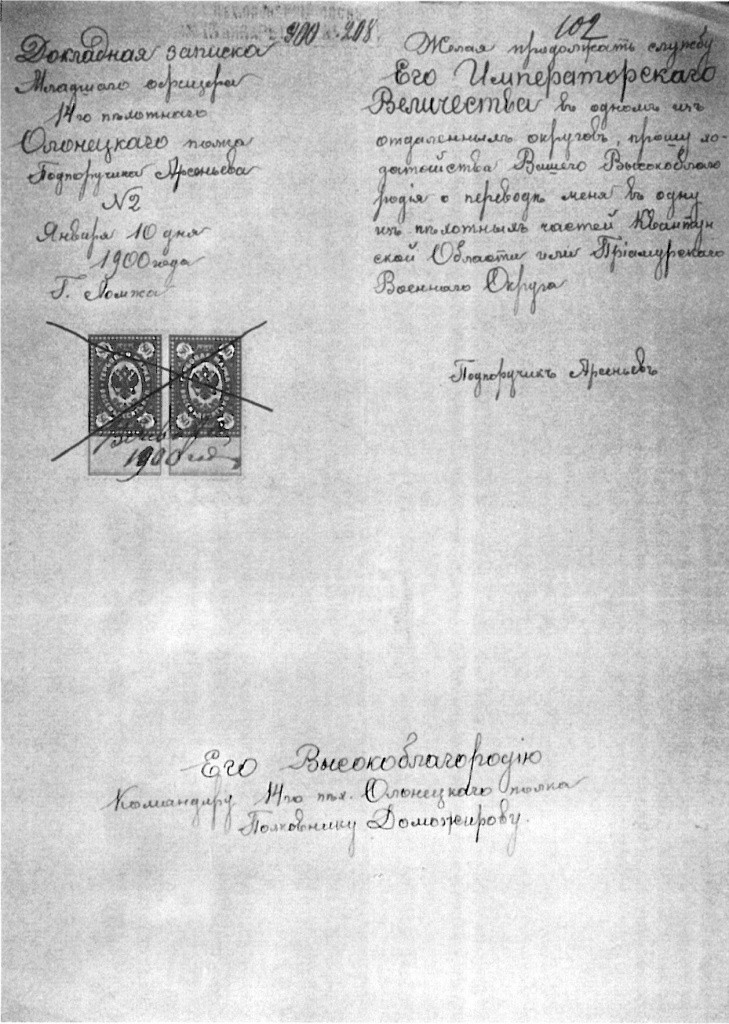 102
Докладная записка
Младшаго офицера
14го пѣхотнаго
Олонецкаго полка
Подпоручика Арсеньева
№2
Января 10 дня
1900 года
Г. Ломжа
Желая продолжать службу
Его Императорскаго
Величества въ одномъ изъ
отдаленныхъ округовъ, прошу хо-
датайства Вашего Высокоблаго
родія о переводѣ меня въ одну
изъ пѣхотныхъ частей Квантун
ской Области или Пріамурскаго
Военнаго Округа
Подпоручикъ Арсеньевъ
1900 год
Его Высокоблагородію
Командиру 14го пѣх. Олонецкаго полка
Полковнику Доможирову.